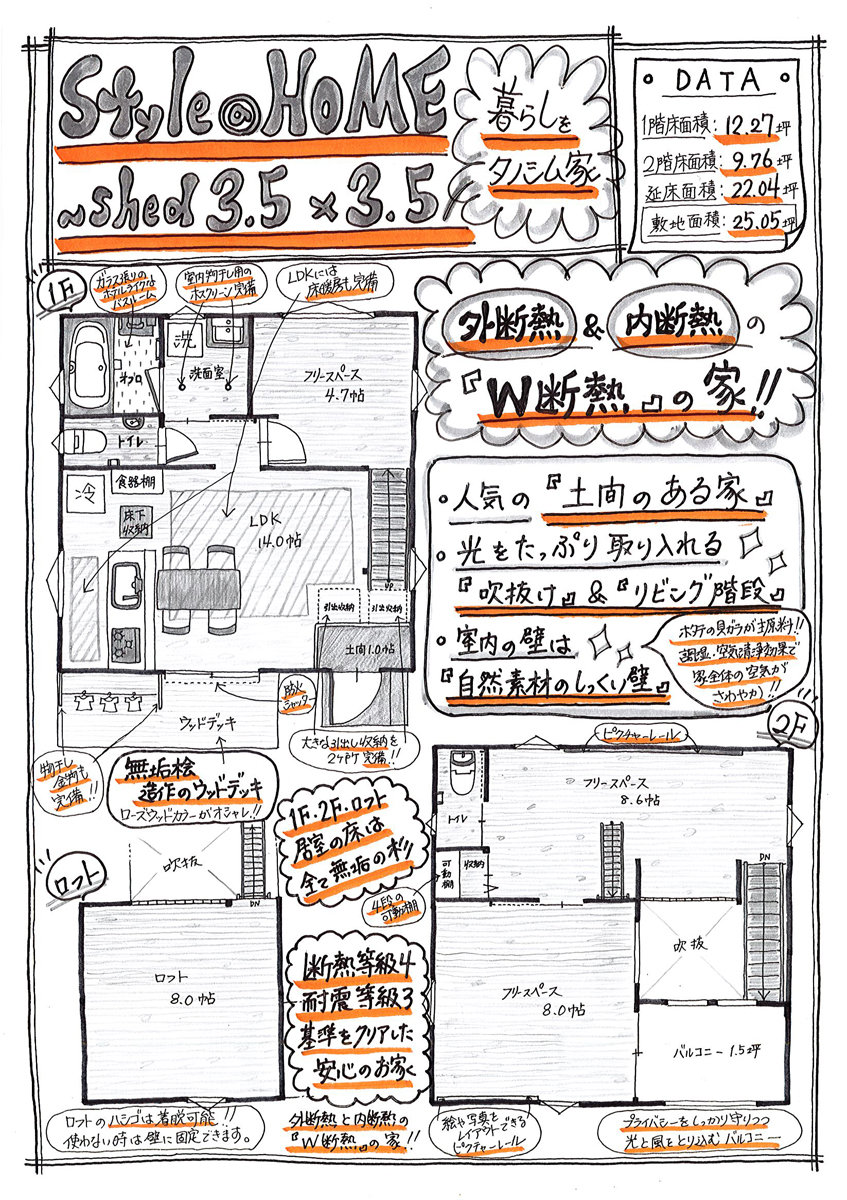 Style@HOME
~shed 3.5×3.5
暮らしを
タノシム家
DATA
1階床面積：12.27坪
2階床面積：9.76坪
延床面積：22.04坪
敷地面積：25.05坪
1F
ガラス張りの
ホテルライクな
バスルーム
室内物干し用の
ホスクリーン完備
LDKには
床暖房も完備
オフロ
洗
洗面室
フリースペース
4.7帖
トイレ
冷
食器棚
床下
収納
LDK
14.0帖
UP
引出収納
引出収納
土間1.0帖
ウッドデッキ
防火
シャッター
物干し
金物も
完備!!
大きな引出し収納を
2ヶ所完備!!
無垢桧
造作のウッドデッキ
ローズウッドカラーがオシャレ!!
外断熱 & 内断熱の
『W断熱』の家!!
・人気の『土間のある家』
・光をたっぷり取り入れる
『吹抜け』&『リビング階段』
・室内の壁は
『自然素材のしっくい壁』
ホタテの貝ガラが主原料!!
調湿・空気清浄効果で
家全体の空気が
さわやか♪!!
2F
ピクチャーレール
フリースペース
8.6帖
トイレ
可動棚
収納
4段の
可動棚
DN
吹抜
フリースペース
8.0帖
バルコニー 1.5坪
1F・2F・ロフト
居室の床は
全て無垢の杉
ロフト
吹抜
DN
ロフト
8.0帖
断熱等級4
耐震等級3
基準をクリアした
安心のお家
ロフトのハシゴは着脱可能!!
使わない時は壁に固定できます。
外断熱と内断熱の
『W断熱』の家!!
絵や写真を
レイアウトできる
ピクチャーレール
プライバシーをしっかり守りつつ
光と風をとり込むバルコニー